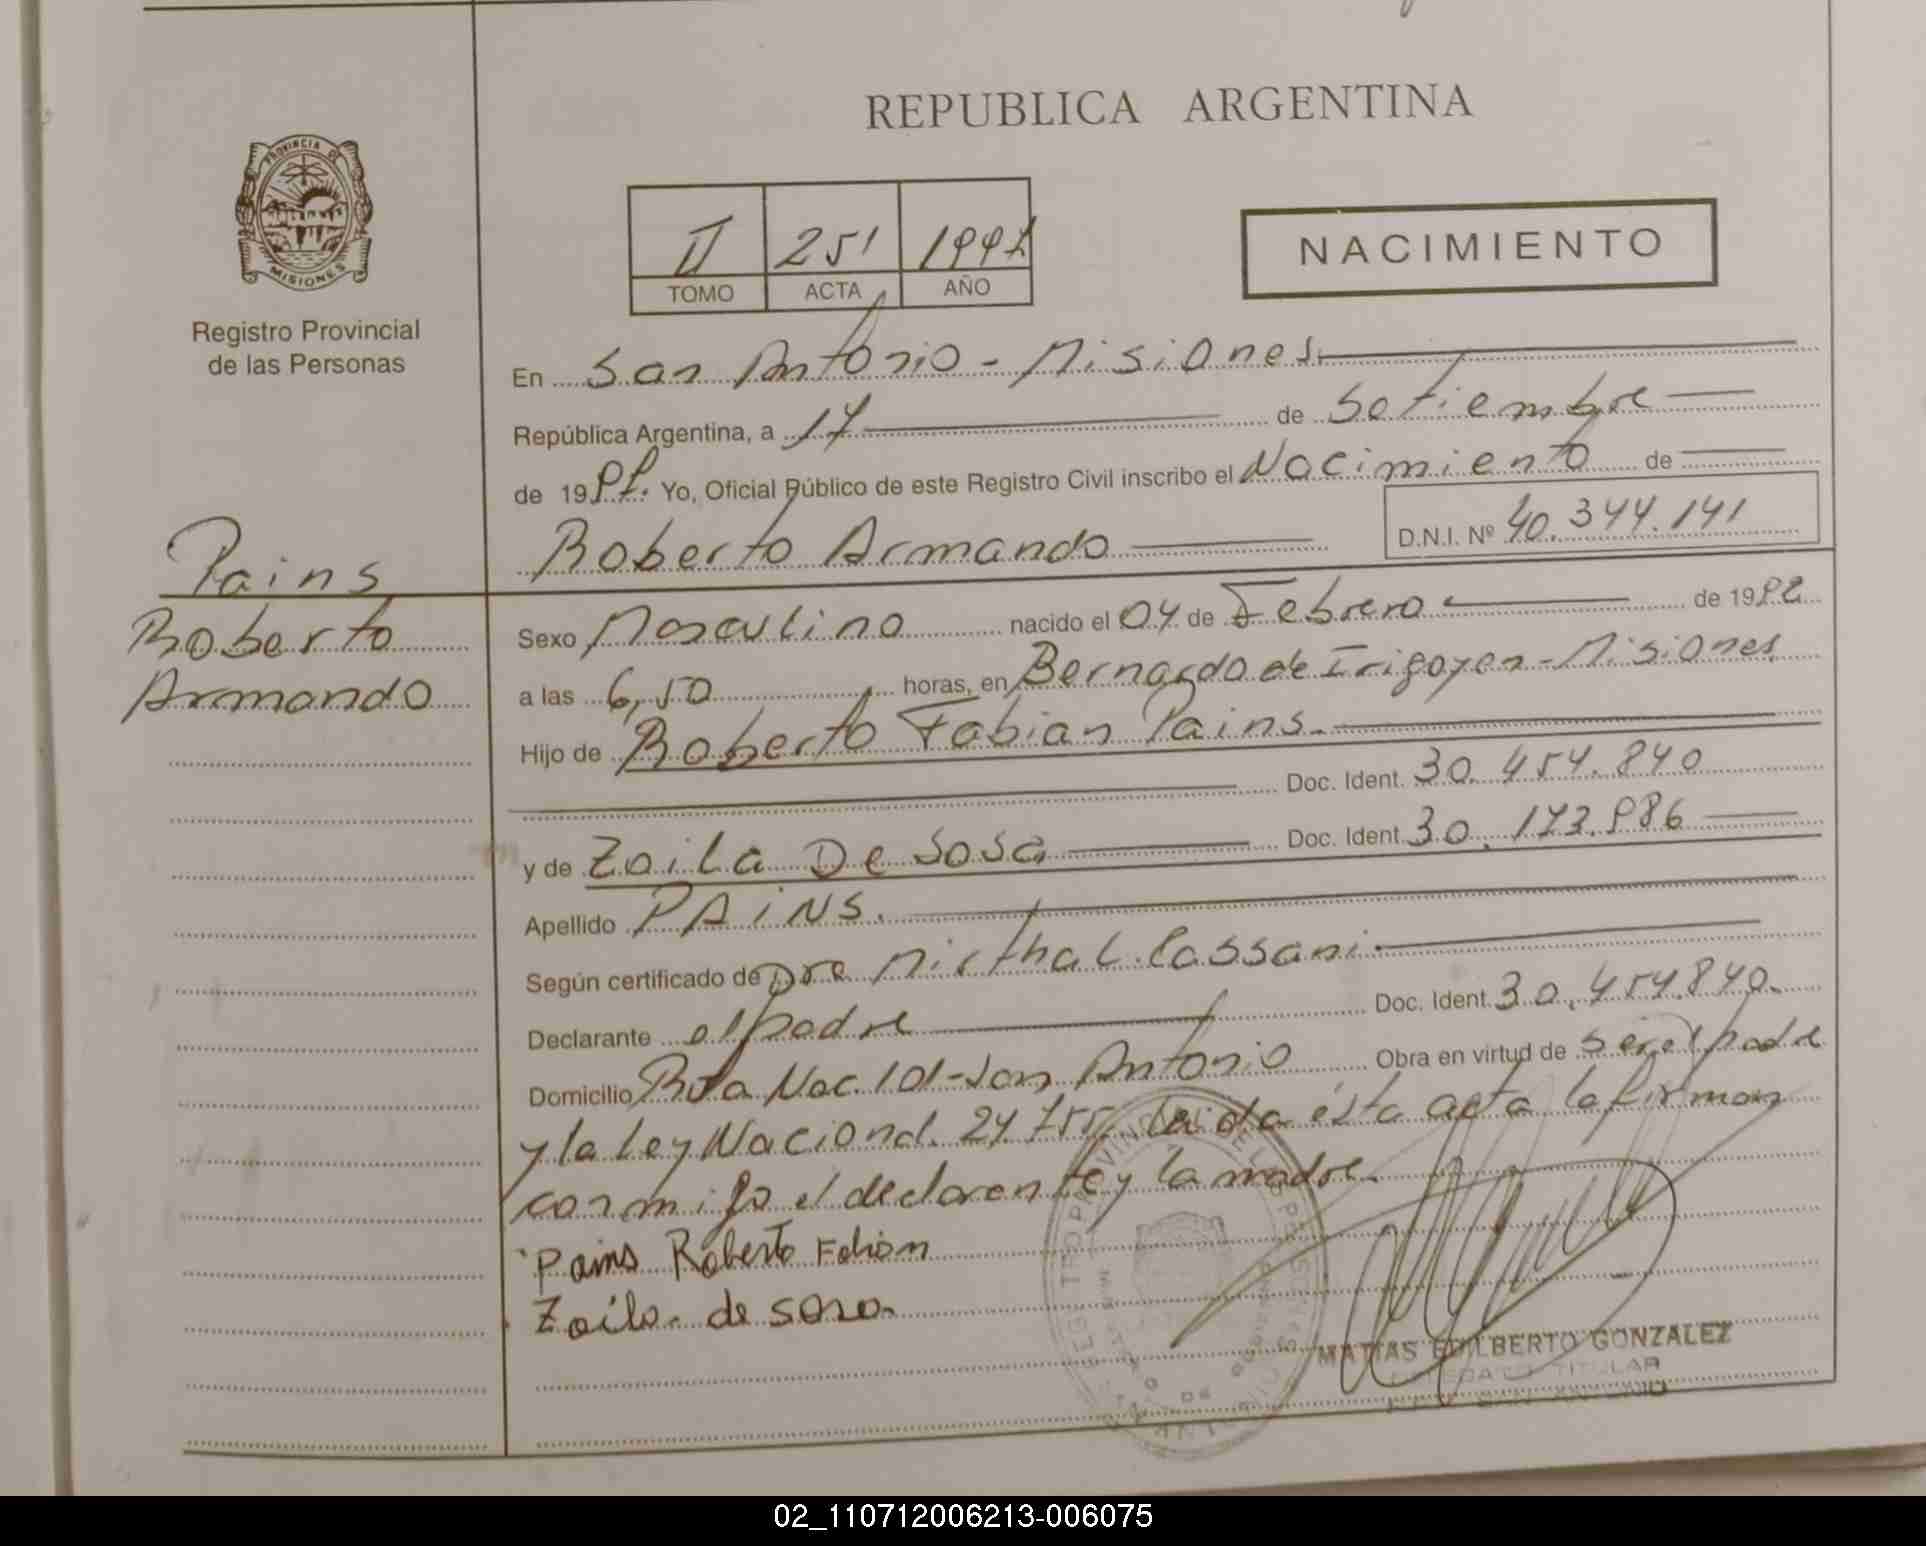 REPUBLICA ARGENTINA
PROVINCIA DE
MISIONES
Registro Provincial
de las Personas
II 251
TOMO ACTA AÑO
NACIMIENTO
En San Antonio - Misiones.
República Argentina, a 17 de Setiembre
de 19 Yo, Oficial Público de este Registro Civil inscribo el Nacimiento de
Roberto Armando D.N.I. Nº 40.344.141
Pains
Roberto
Armando
Sexo Masculino nacido el 04 de Febrero de 19
a las 6,50 horas, en Bernardo de Irigoyen - Misiones
Hijo de Roberto Fabian Pains.
Doc. Ident. 30.454.840
y de Zoila De Sosa Doc. Ident. 30.173.986
Apellido PAINS.
Según certificado de Dra Mirtha L. Cassani.
Declarante el padre Doc. Ident. 30.454.840.
Domicilio Ruta Nac. 101 - San Antonio Obra en virtud de ser el padre
y la Ley Nacional. 24.755, leida ésta acta la firman
conmigo el declarante y la madre.
Pains Roberto Fabian
Zoila de sosa
MATIAS EDILBERTO GONZALEZ
TITULAR
SAN ANTONIO
02_110712006213-006075